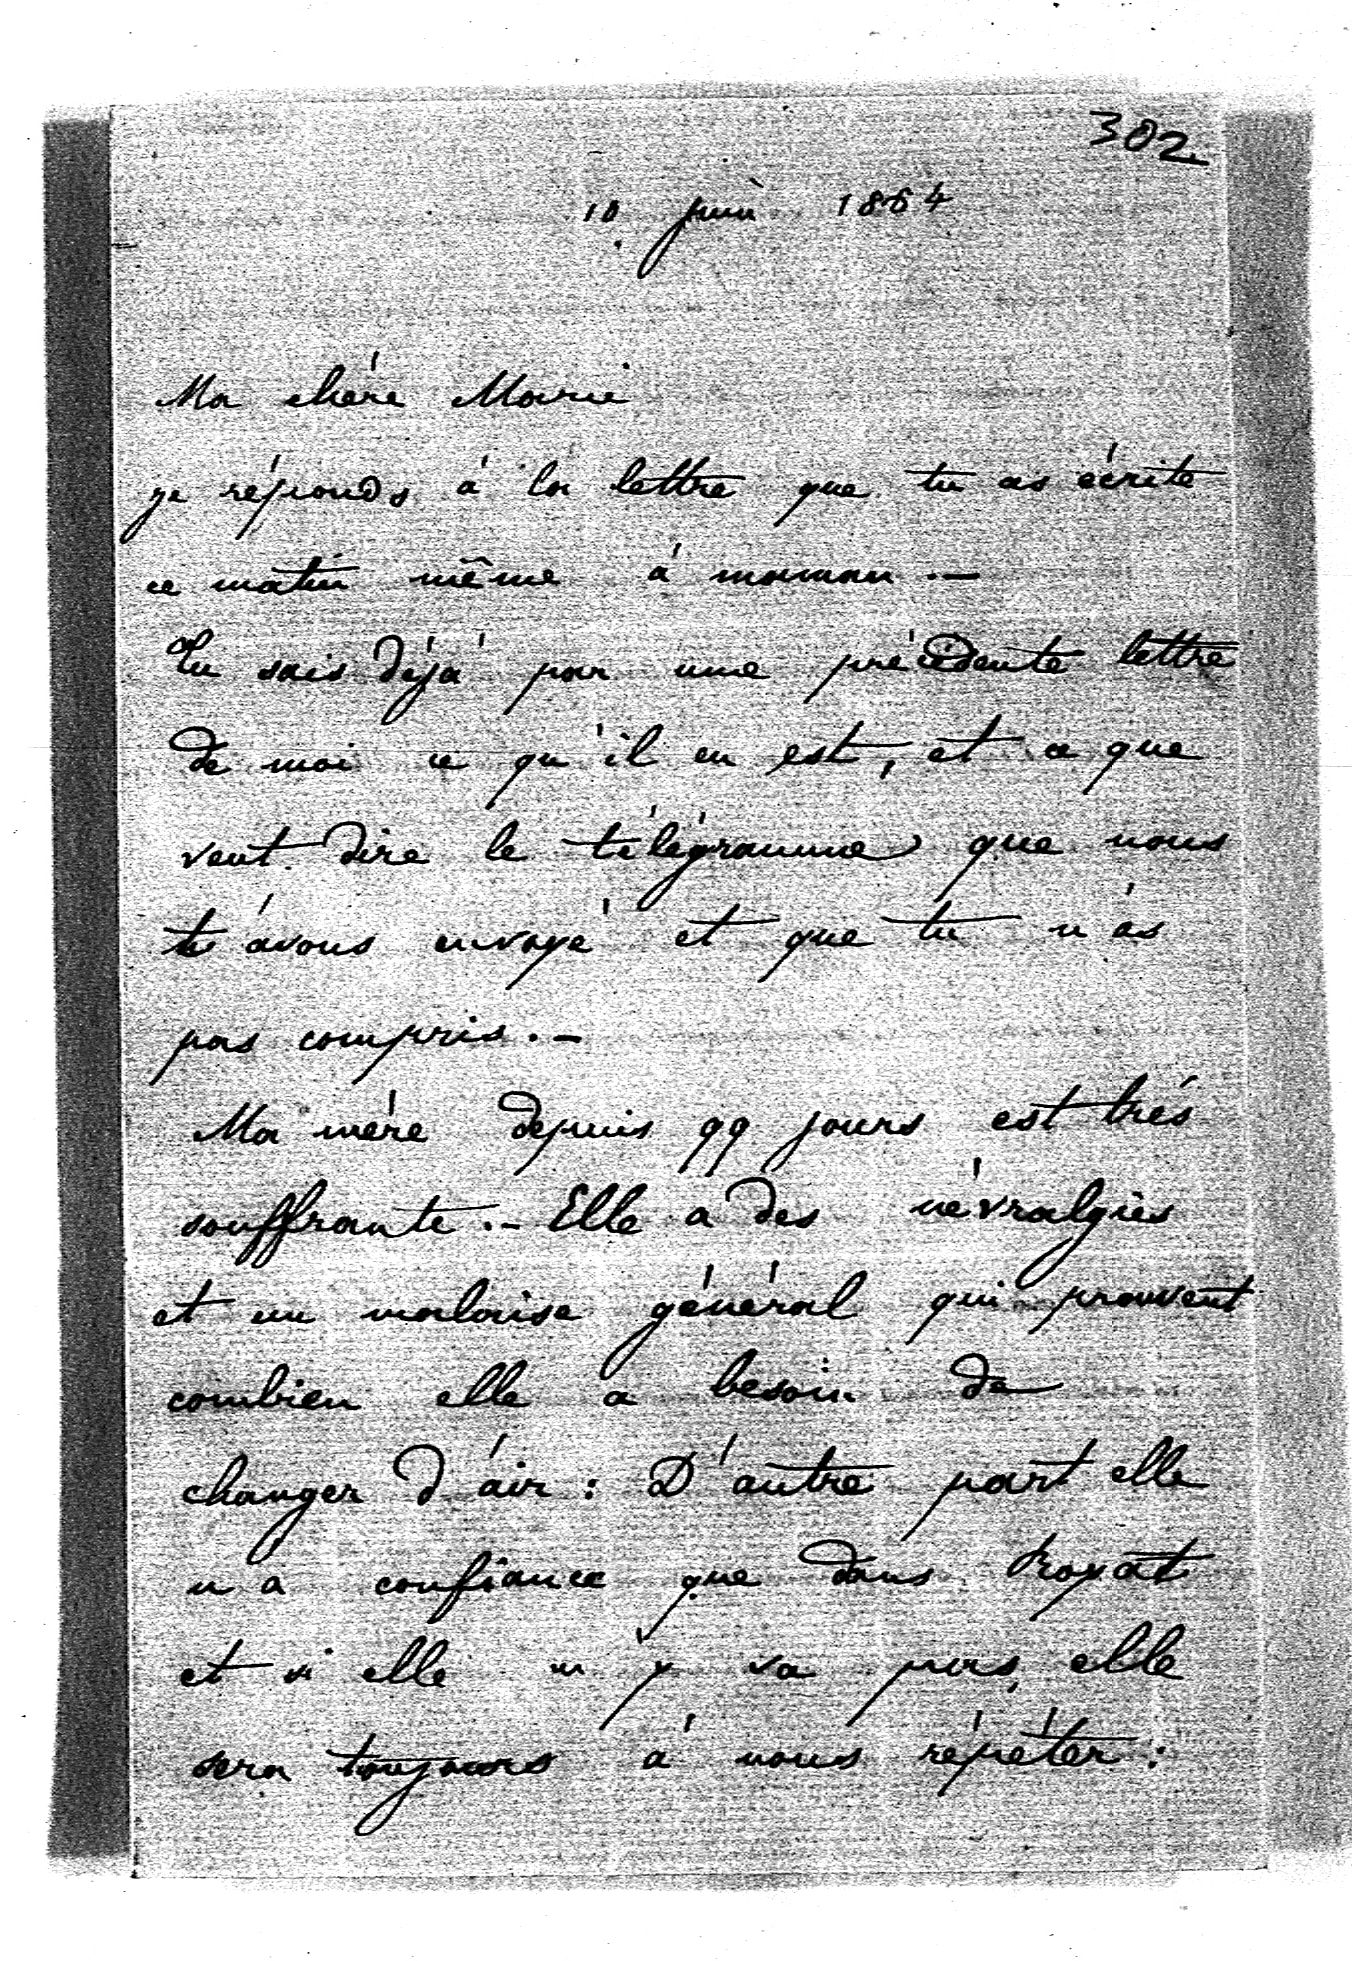 302
10 juin 1864
Ma chère Marie
je réponds à la lettre que tu as écrite
ce matin même à maman. —
Tu sais déjà par une précédente lettre
de moi ce qu'il en est, et ce que
veut dire le télégramme que nous
t'avons envoyé et que tu n'as
pas compris. —
Ma mère depuis qq jours est très
souffrante. — Elle a des névralgies
et un malaise général qui prouvent
combien elle a besoin de
changer d'air : D'autre part elle
n'a confiance que dans Royat
et si elle n'y va pas, elle
sera toujours à nous répéter :